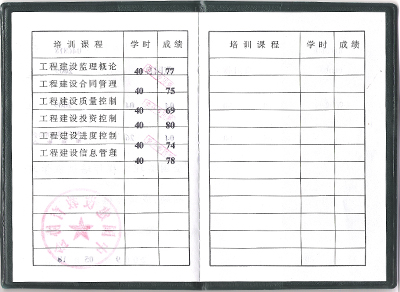 培训课程 学时 成绩
工程建设监理概论 40 77
工程建设合同管理 40 75
工程建设质量控制 40 69
工程建设投资控制 40 80
工程建设进度控制 40 74
工程建设信息管理 40 78
培训课程 学时 成绩